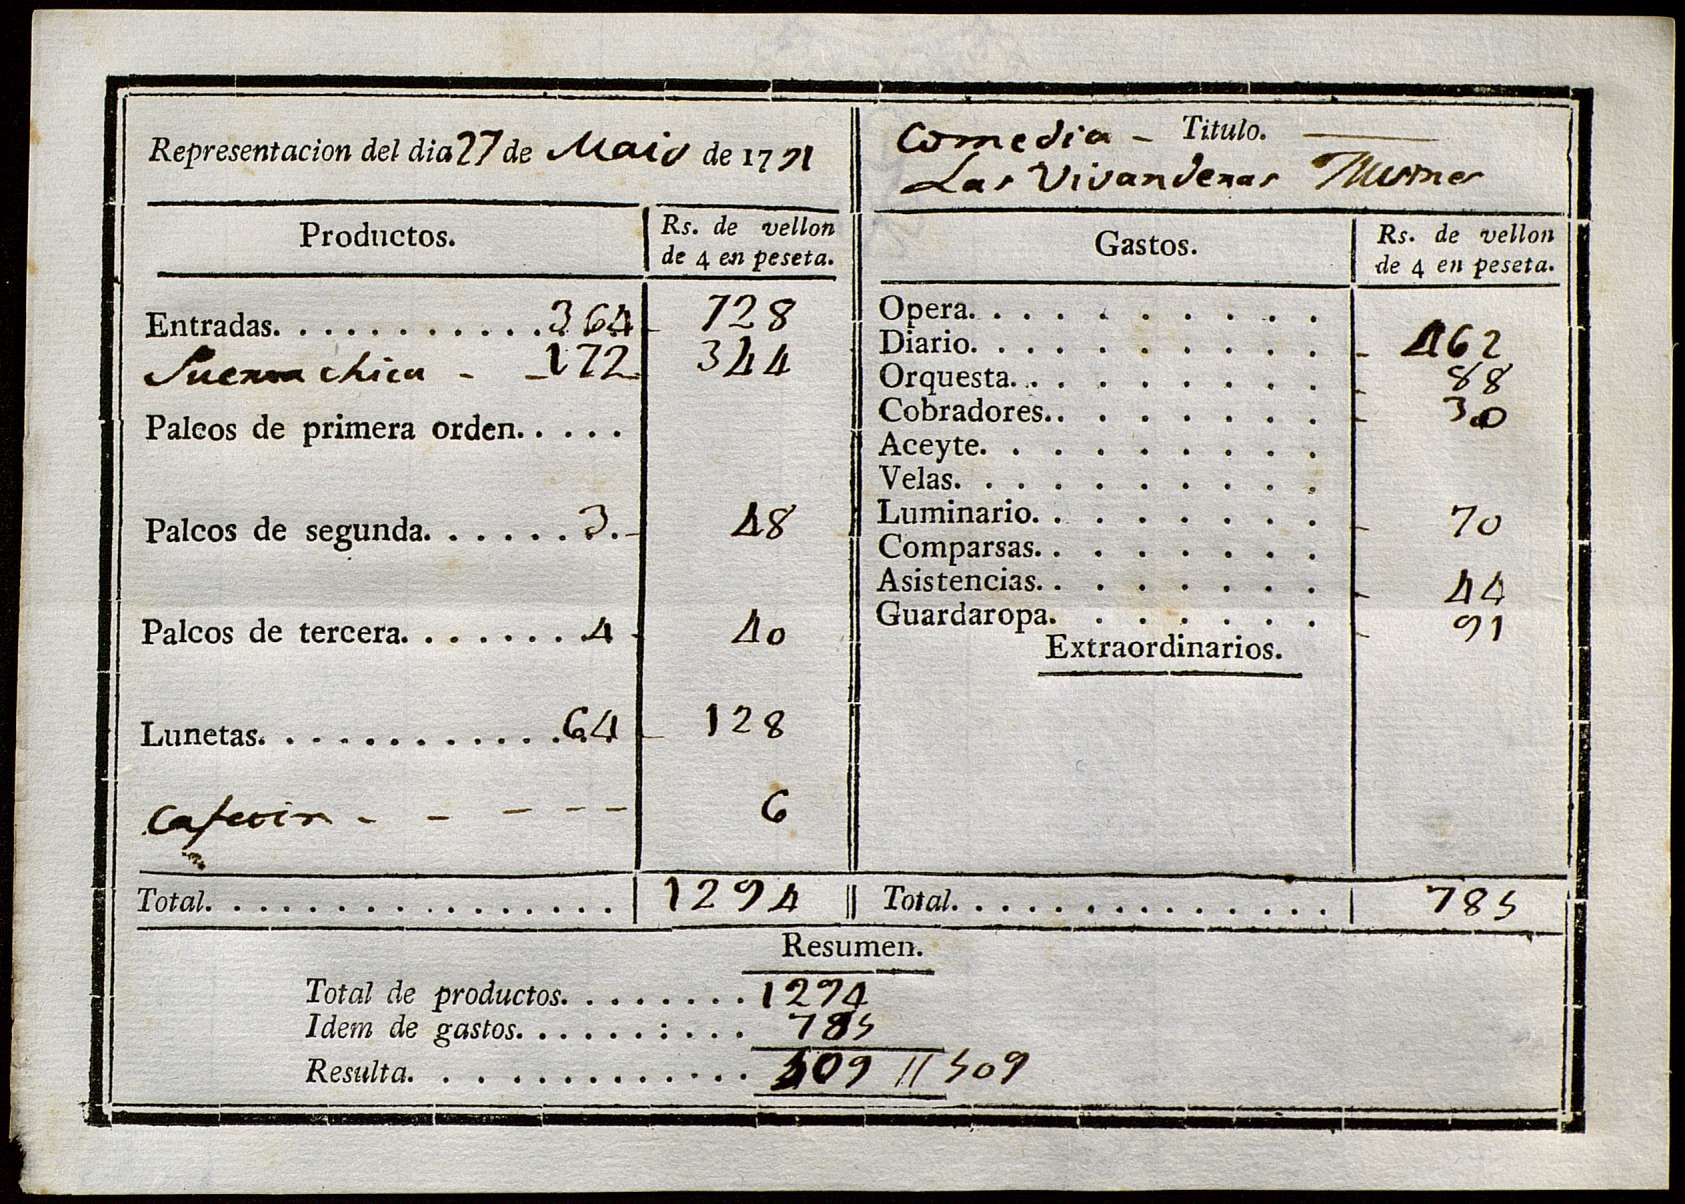 Representacion del dia 27 de Maio de 1791
Comedia - Titulo.
Las Vivanderas
Productos.
Rs. de vellon
de 4 en peseta.
Entradas. . . . . . . . . . . . 364 - 728
chica - - 172 344
Palcos de primera orden. . . . .
Palcos de segunda. . . . . . 3. - 48
Palcos de tercera. . . . . . . 4 - 40
Lunetas. . . . . . . . . . . . 64 - 128
- - - - - 6
Total. . . . . . . . . . . . . . . . 1294
Gastos.
Rs. de vellon
de 4 en peseta.
Opera. . . . . . . . . . .
Diario. . . . . . . . . . . - 462
Orquesta. . . . . . . . . . - 88
Cobradores. . . . . . . . . - 30
Aceyte. . . . . . . . . . .
Velas. . . . . . . . . . . .
Luminario. . . . . . . . . - 70
Comparsas. . . . . . . . .
Asistencias. . . . . . . . . - 44
Guardaropa. . . . . . . . - 91
Extraordinarios.
Total. . . . . . . . . . . . . . . 785
Resumen.
Total de productos. . . . . . . . 1294
Idem de gastos. . . . . . : . . . 785
Resulta. . . . . . . . . . . . . 509 // 509